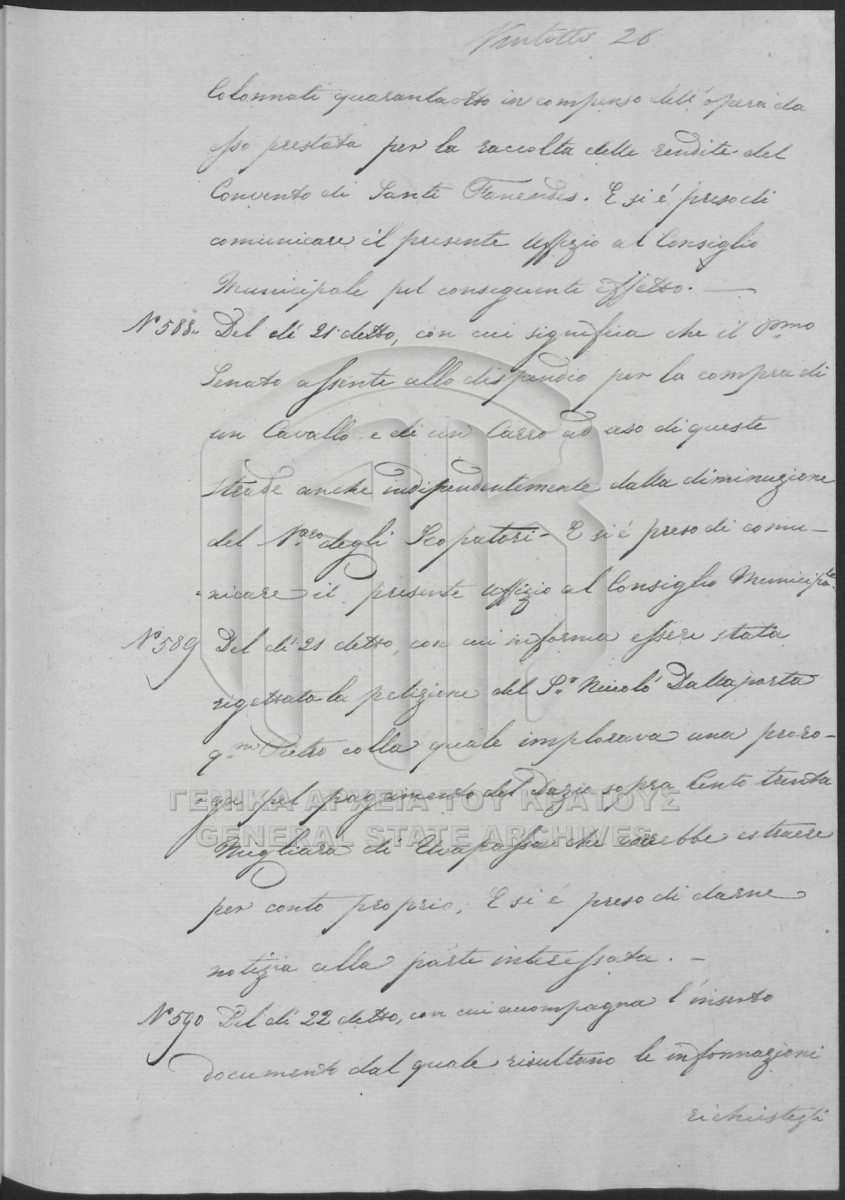 Ventotto 28
Colonnati quarantaotto in compenso dell'opera da
esso prestata per la raccolta delle rendite del
Convento di Santi Fanendes. E si é preso di
comunicare il presente Uffizio al Consiglio
Municipale pel conseguente effetto. —
Nº 588. Del dí 21 detto, con cui significa che il Pmo
Senato assente allo dispendio per la compra di
un Cavallo e di un Carro ad uso di queste
strade anche indipendentemente dalla diminuzione
del Nero degli Scopatori - E si é preso di comu-
nicare il presente Uffizio al Consiglio Municiple.
Nº 589 Del dí 21 detto, con cui informa essere stata
rigettata la petizione del Sr Niccoló Dallaporta
qm Pietro colla quale implorava una proro-
ga pel pagamento del Dazio sopra Cento trenta
ΓΕΝΙΚΑ ΑΡΧΕΙΑ ΤΟΥ ΚΡΑΤΟΥΣ
GENERAL STATE ARCHIVES
Migliara di Uvapassa che vorrebbe estraere
per conto proprio, E si é preso di darne
notizia alla parte interessata. -
Nº 590 Del dí 22 detto, con cui accompagna l'inserto
documento dal quale risultano le informazioni
richiestegli